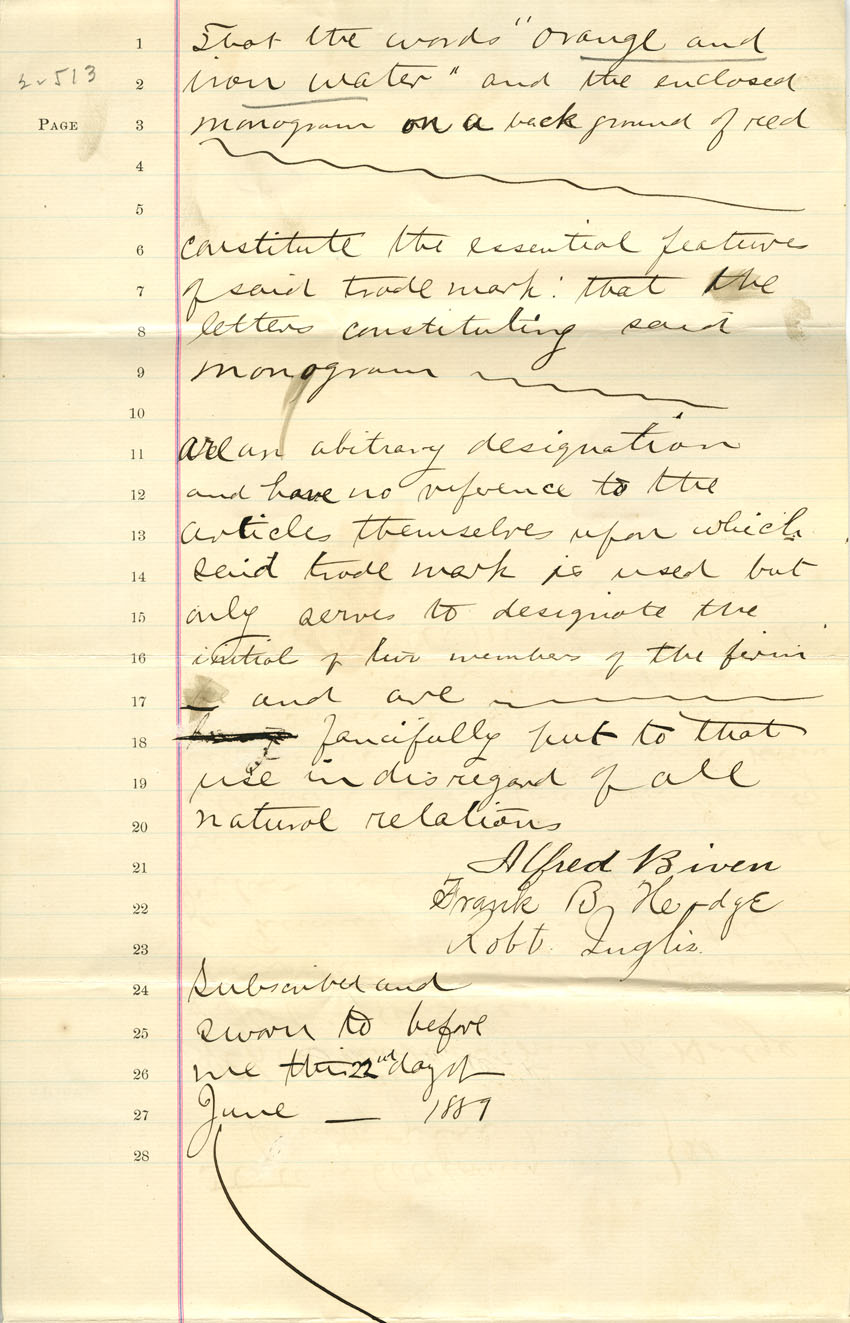 1 That the words "orange and
2-513
2 iron water" and the enclosed
PAGE 3 monogram on a back ground of red
4
5
6 constitute the essential features
7 of said trade mark: that the
8 letters constituting said
9 monogram
10
11 are an abitrary designation
12 and have no reference to the
13 articles themselves upon which
14 said trade mark is used but
15 only serves to designate the
16 initial of two members of the firm
17 and are
18 fancifully put to that
19 use in disregard of all
20 natural relations
21 Alfred Biven
22 Frank B Hedge
23 Robt. Inglis.
24 Subscribed and
25 sworn to before
26 me this 22nd day of
27 June — 1889
28